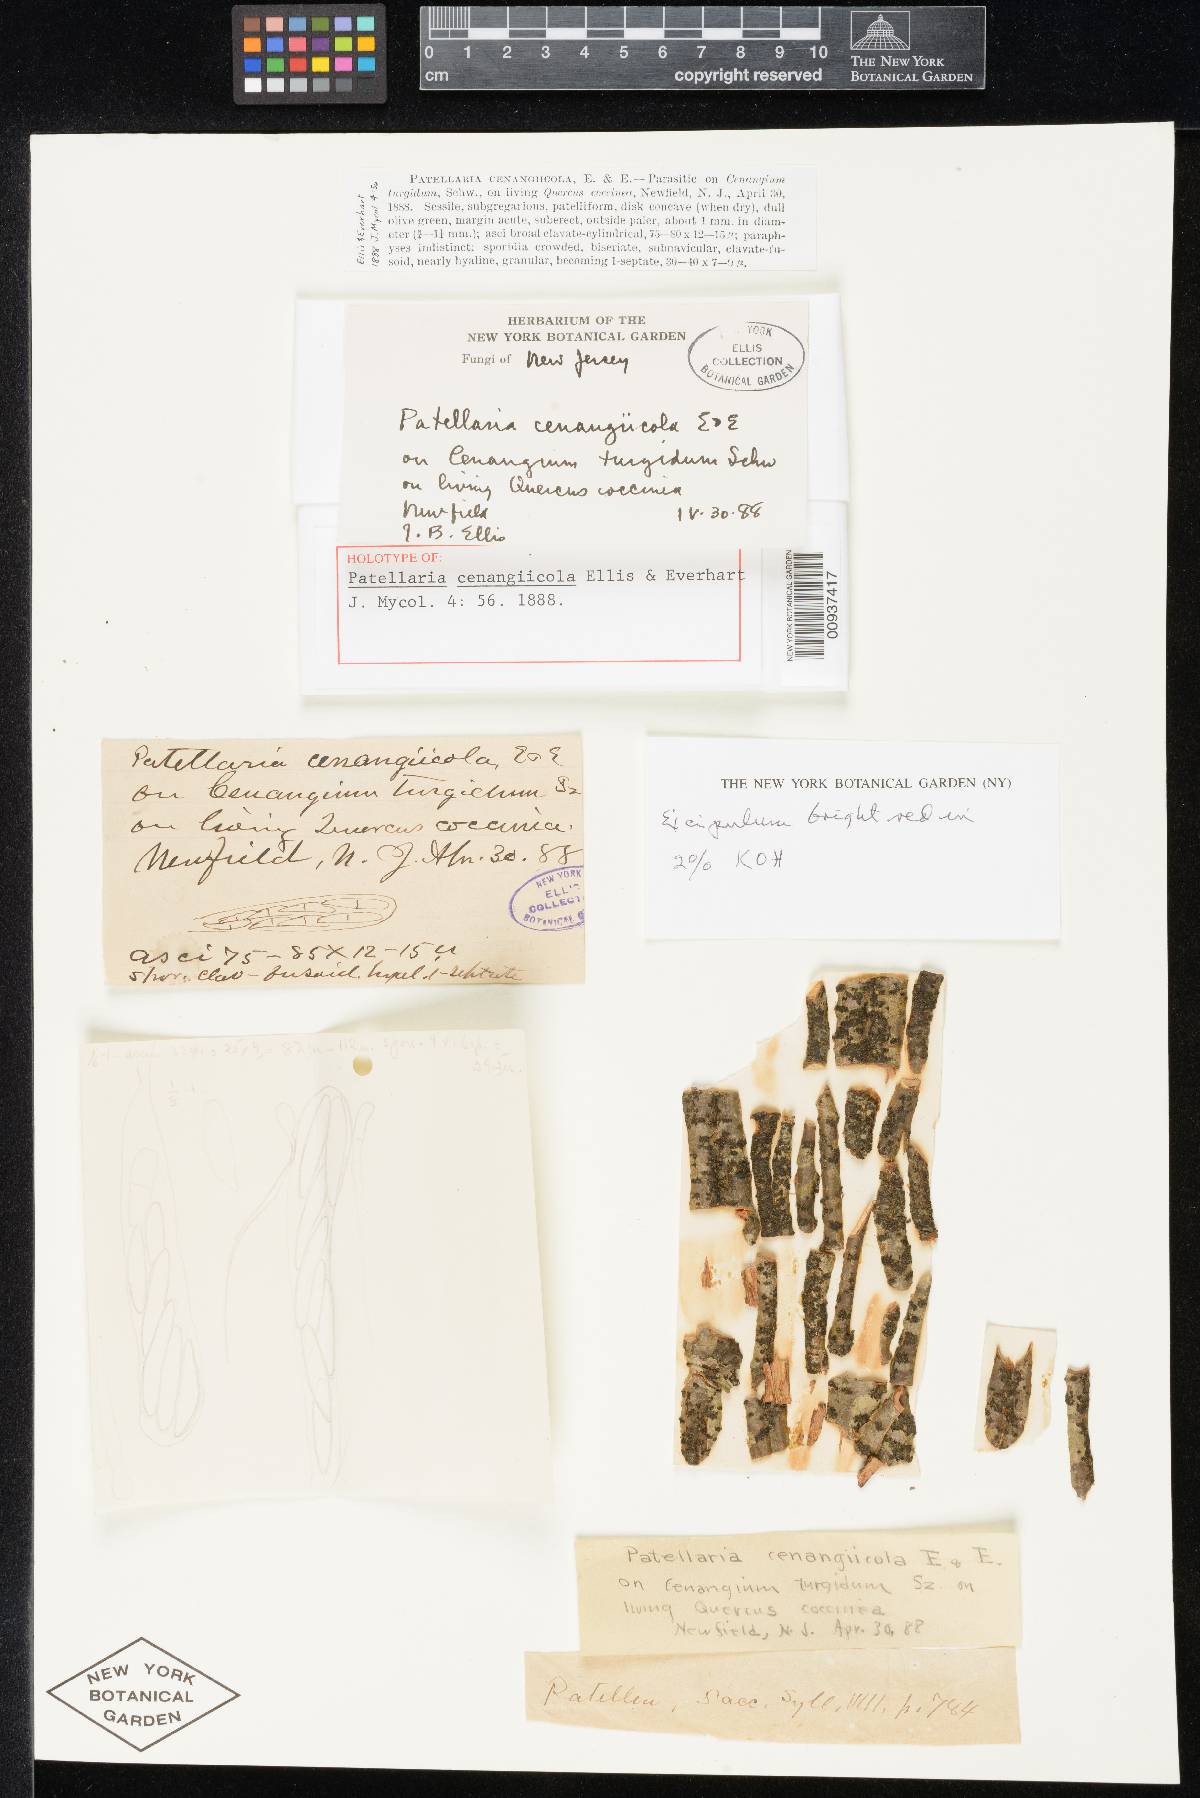 0 1 2 3 4 5 6 7 8 9 10
cm
copyright reserved
THE NEW YORK
BOTANICAL GARDEN
PATELLARIA CENANGIICOLA, E. & E.—Parasitic on Cenangium
turgidum, Schw., on living Quercus coccinea, Newfield, N. J., April 30,
1888. Sessile, subgregarious, patelliform, disk concave (when dry), dull
olive green, margin acute, suberect, outside paler, about 1 mm. in diam-
eter (¾—1¼ mm.); asci broad clavate-cylindrical, 75—80 x 12—15 µ; paraph-
yses indistinct; sporidia crowded, biseriate, subnavicular, clavate-fu-
soid, nearly hyaline, granular, becoming 1-septate, 30—40 x 7—9 µ.
Ellis & Everhart
1888 J. Mycol 4:56
HERBARIUM OF THE
NEW YORK BOTANICAL GARDEN
Fungi of New Jersey
YORK
ELLIS
COLLECTION
BOTANICAL GARDEN
Patellaria cenangiicola E & E
on Cenangium turgidum Schw
on living Quercus coccinea
Newfield IV.30.88
J. B. Ellis
HOLOTYPE OF:
Patellaria cenangiicola Ellis & Everhart
J. Mycol. 4: 56. 1888.
NEW YORK BOTANICAL GARDEN
00937417
Patellaria cenangiicola, E & E
on Cenangium turgidum Sz
on living Quercus coccinea.
Newfield, N. J. Apr. 30. 88
NEW YORK
ELLIS
COLLECT
BOTANICAL G
asci 75–85 x 12–15 µ
spor. clav-fusoid. hyal. 1-septate
THE NEW YORK BOTANICAL GARDEN (NY)
Excipulum bright red in
2% KOH
Patellaria cenangiicola E & E.
on Cenangium turgidum Sz on
living Quercus coccinea
Newfield, N. J. Apr. 30, 88
Patellea, Sacc. Syll. VIII, p. 784
NEW YORK
BOTANICAL
GARDEN